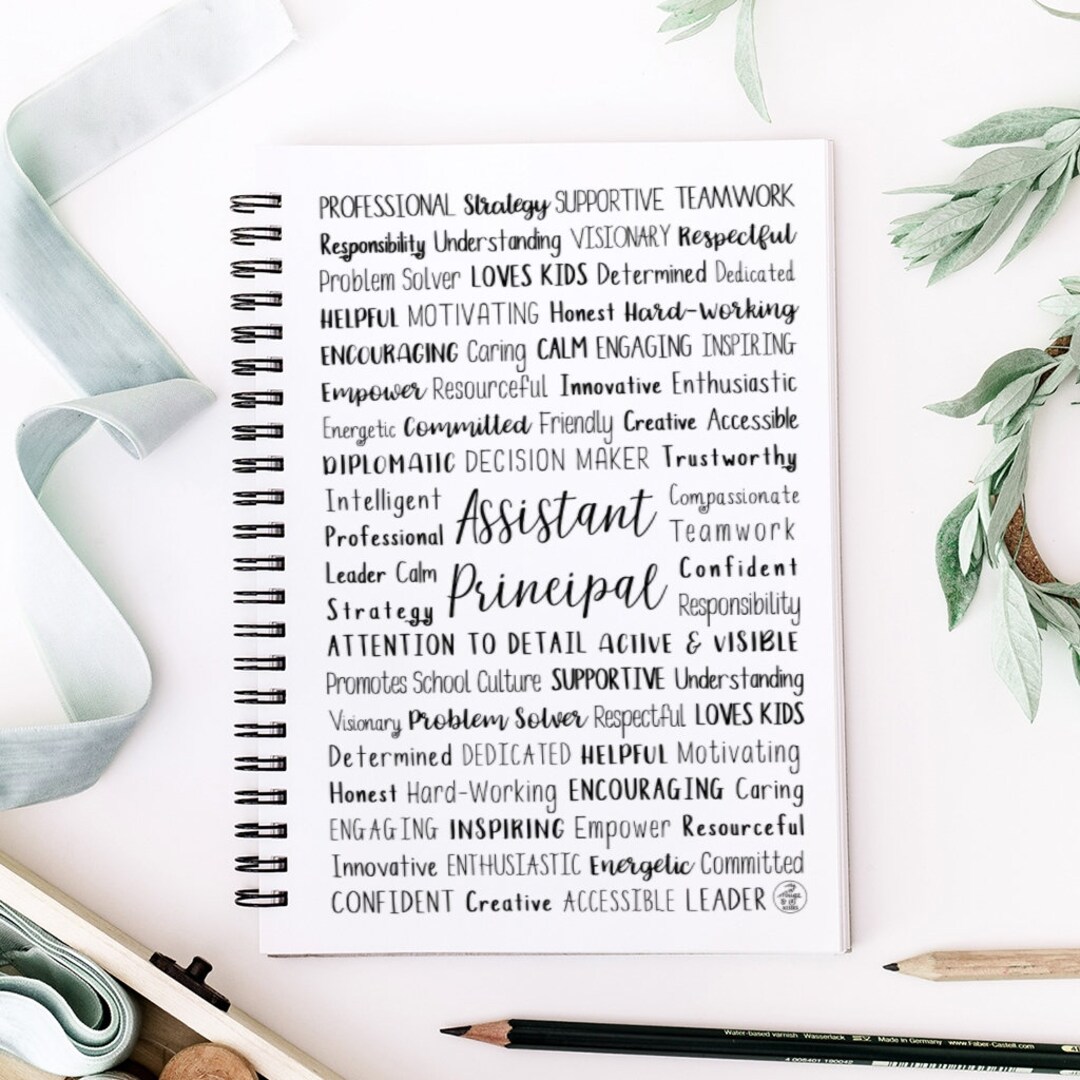 PROFESSIONAL Strategy SUPPORTIVE TEAMWORK
Responsibility Understanding VISIONARY Respectful
Problem Solver LOVES KIDS Determined Dedicated
HELPFUL MOTIVATING Honest Hard-Working
ENCOURAGING Caring CALM ENGAGING INSPIRING
Empower Resourceful Innovative Enthusiastic
Energetic Committed Friendly Creative Accessible
DIPLOMATIC DECISION MAKER Trustworthy
Intelligent
Professional
Assistant
Compassionate
Teamwork
Leader Calm
Strategy
Principal
Confident
Responsibility
ATTENTION TO DETAIL ACTIVE & VISIBLE
Promotes School Culture SUPPORTIVE Understanding
Visionary Problem Solver Respectful LOVES KIDS
Determined DEDICATED HELPFUL Motivating
Honest Hard-Working ENCOURAGING Caring
ENGAGING INSPIRING Empower Resourceful
Innovative ENTHUSIASTIC Energetic Committed
CONFIDENT Creative ACCESSIBLE LEADER
Water-based varnish Wasserlack Made in Germany www.Faber-Castell.com
4 005401 190042